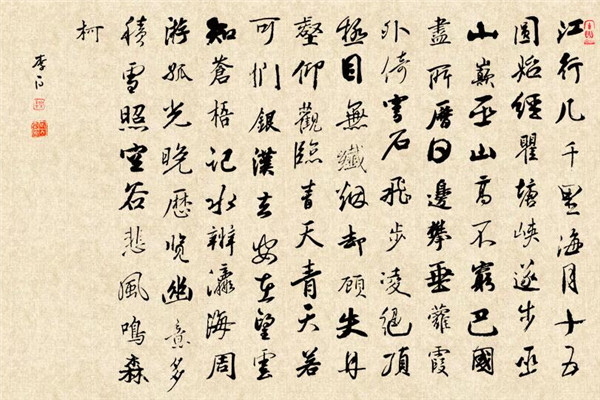 江行几千里海月十五
圓始經瞿塘峽遂步巫
山巔巫山高不窮巴國
盡所曆日邊攀垂蘿霞
外倚穹石飛步凌絕頂
極目無纖烟却顧失丹
壑仰觀臨青天青天若
可捫銀漢去安在望雲
知蒼梧記水辨瀛海周
游孤光晚歷覽幽意多
積雪照空谷悲風鳴森
柯
李白